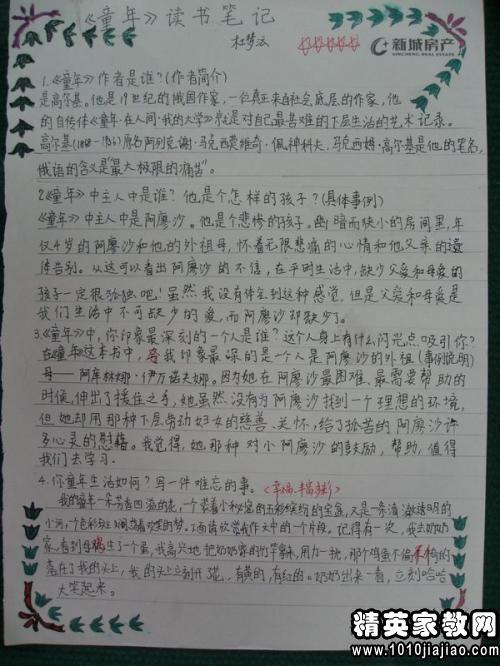 《童年》读书笔记
杜梦
新城房产
XINCHENG REAL ESTATE
1.《童年》作者是谁?(作者简介)
是高尔基。他是19世纪的俄国作家,一位真正来自社会底层的作家,他
的自传体《童年·在人间·我的大学》就是对自己最苦难的下层生活的艺术记录。
高尔基(1868—1936)原名阿列克谢·马克西莫维奇·佩神科夫。马克西姆·高尔基是他的笔名,
俄语的含义是"最大极限的痛苦"。
2《童年》中主人中是谁?他是个怎样的孩子?(具体事例)
《童年》中主人中是阿廖沙。他是个悲惨的孩子。幽暗而狭小的房间里,年
仅4岁的阿廖沙和他的外祖母,怀着无限悲痛的心情和他父亲的遗
体告别。从这可以看出阿廖沙的不信,在平时生活中,缺少父爱和母爱的
孩子一定很孤独吧!虽然我没有体会到这种感觉,但是父爱和母爱是
我们生活中不可缺少的爱,而阿廖沙却缺少了。
3.《童年》中,你印象最深刻的一个人是谁?这个人身上有什么闪光点吸引你?
在《童年》这本书中,令我印象最深的是一个人是阿廖沙的外祖(事例说明)
母——阿库林娜·伊万诺夫娜。因为她在阿廖沙最困难、最需要帮助的
时候,伸出了援住之手,她虽然没有为阿廖沙找到一个理想的环境,
但她却用那种下层劳动妇女的慈善、关怀,给了孤苦的阿廖沙许
多心灵的慰藉。我觉得,她那种对小阿廖沙的鼓励,帮助,值得
我们去学习.
4.你童年生活如何?写一件难忘的事。(幸福、丰富多彩)
我的童年一朵芳香四溢的花,一个装着小秘密的五彩缤纷的宝盒,又是一条清澈透明的
小河,一个色彩斑斓欢笑的梦。下面请欣赏我作文中的一个片段。记得有一次,我去奶奶
家,看到母鸡生了一个蛋,我高兴地把奶奶家的竹竿拿来,用力一挑,那个鸡蛋不偏不倚的
落在了我的头上,我的头上立刻开花,有黄的,有红的。奶奶出来一看,立刻哈哈
大笑起来。
精英家教网
http://www.1010jiajiao.com